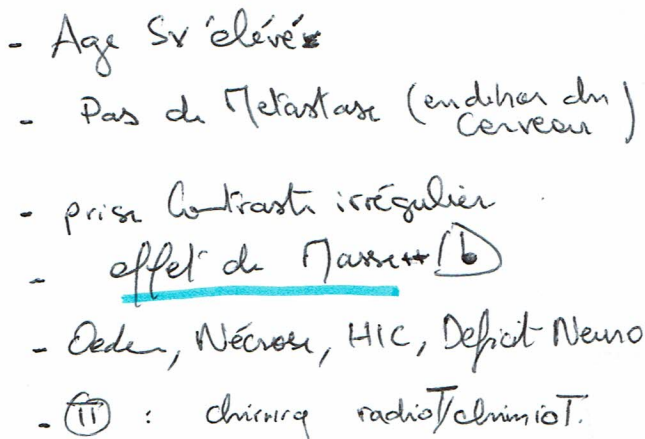 - Age Sv élévé
- Pas de Metastase (en dehor du
Cerveau)
- prise Contraste irrégulier
- effet de Masse ++
- Oedem, Nécrose, HIC, Deficit Neuro
- TT : chirurg radioT/chimioT.